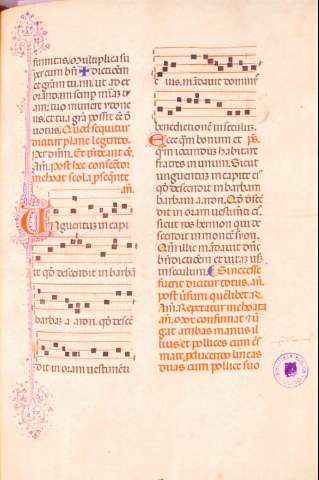 firmitas, o multiplica su
per eum bn̄ ✠ dictiōem
et grām tuam. ut ad ex
orandam semp̄
tuo munere ydone
us, et tua grā possit eē d
uotus. Quod sequitur
dicatur plane legendo.
Per dūm. Et
am̄. Post hec consecrator
inchoat scola psequēte
an̄.
Unguentus in capi
te qd̄ descendit in barbā
barbaz aaron. qd̄ descē
dit in oram vestimēti
eius. mādavit dominus
benedictionē in seculūs.
Ecce qm̄ bonum et
qm̄ iocundus habitare
fratres in unum. Sicut
unguentus in capite
qd̄ descendit in barbam
barbam aaron. Qd̄ descē
dit in oram vestimēti
sicut ros hermon qui de
scendit in montē syon.
Qm̄ illic mādavit dn̄s
bn̄dictiōem et vitaz usq
in seculum. Si necesse
fuerit dicatur totus, an̄.
post
An̄a reptatur inchoata
an̄. 
gat ambas manus il
lius et pollices cum
mate, pducendo lineas
duas cum pollice suo